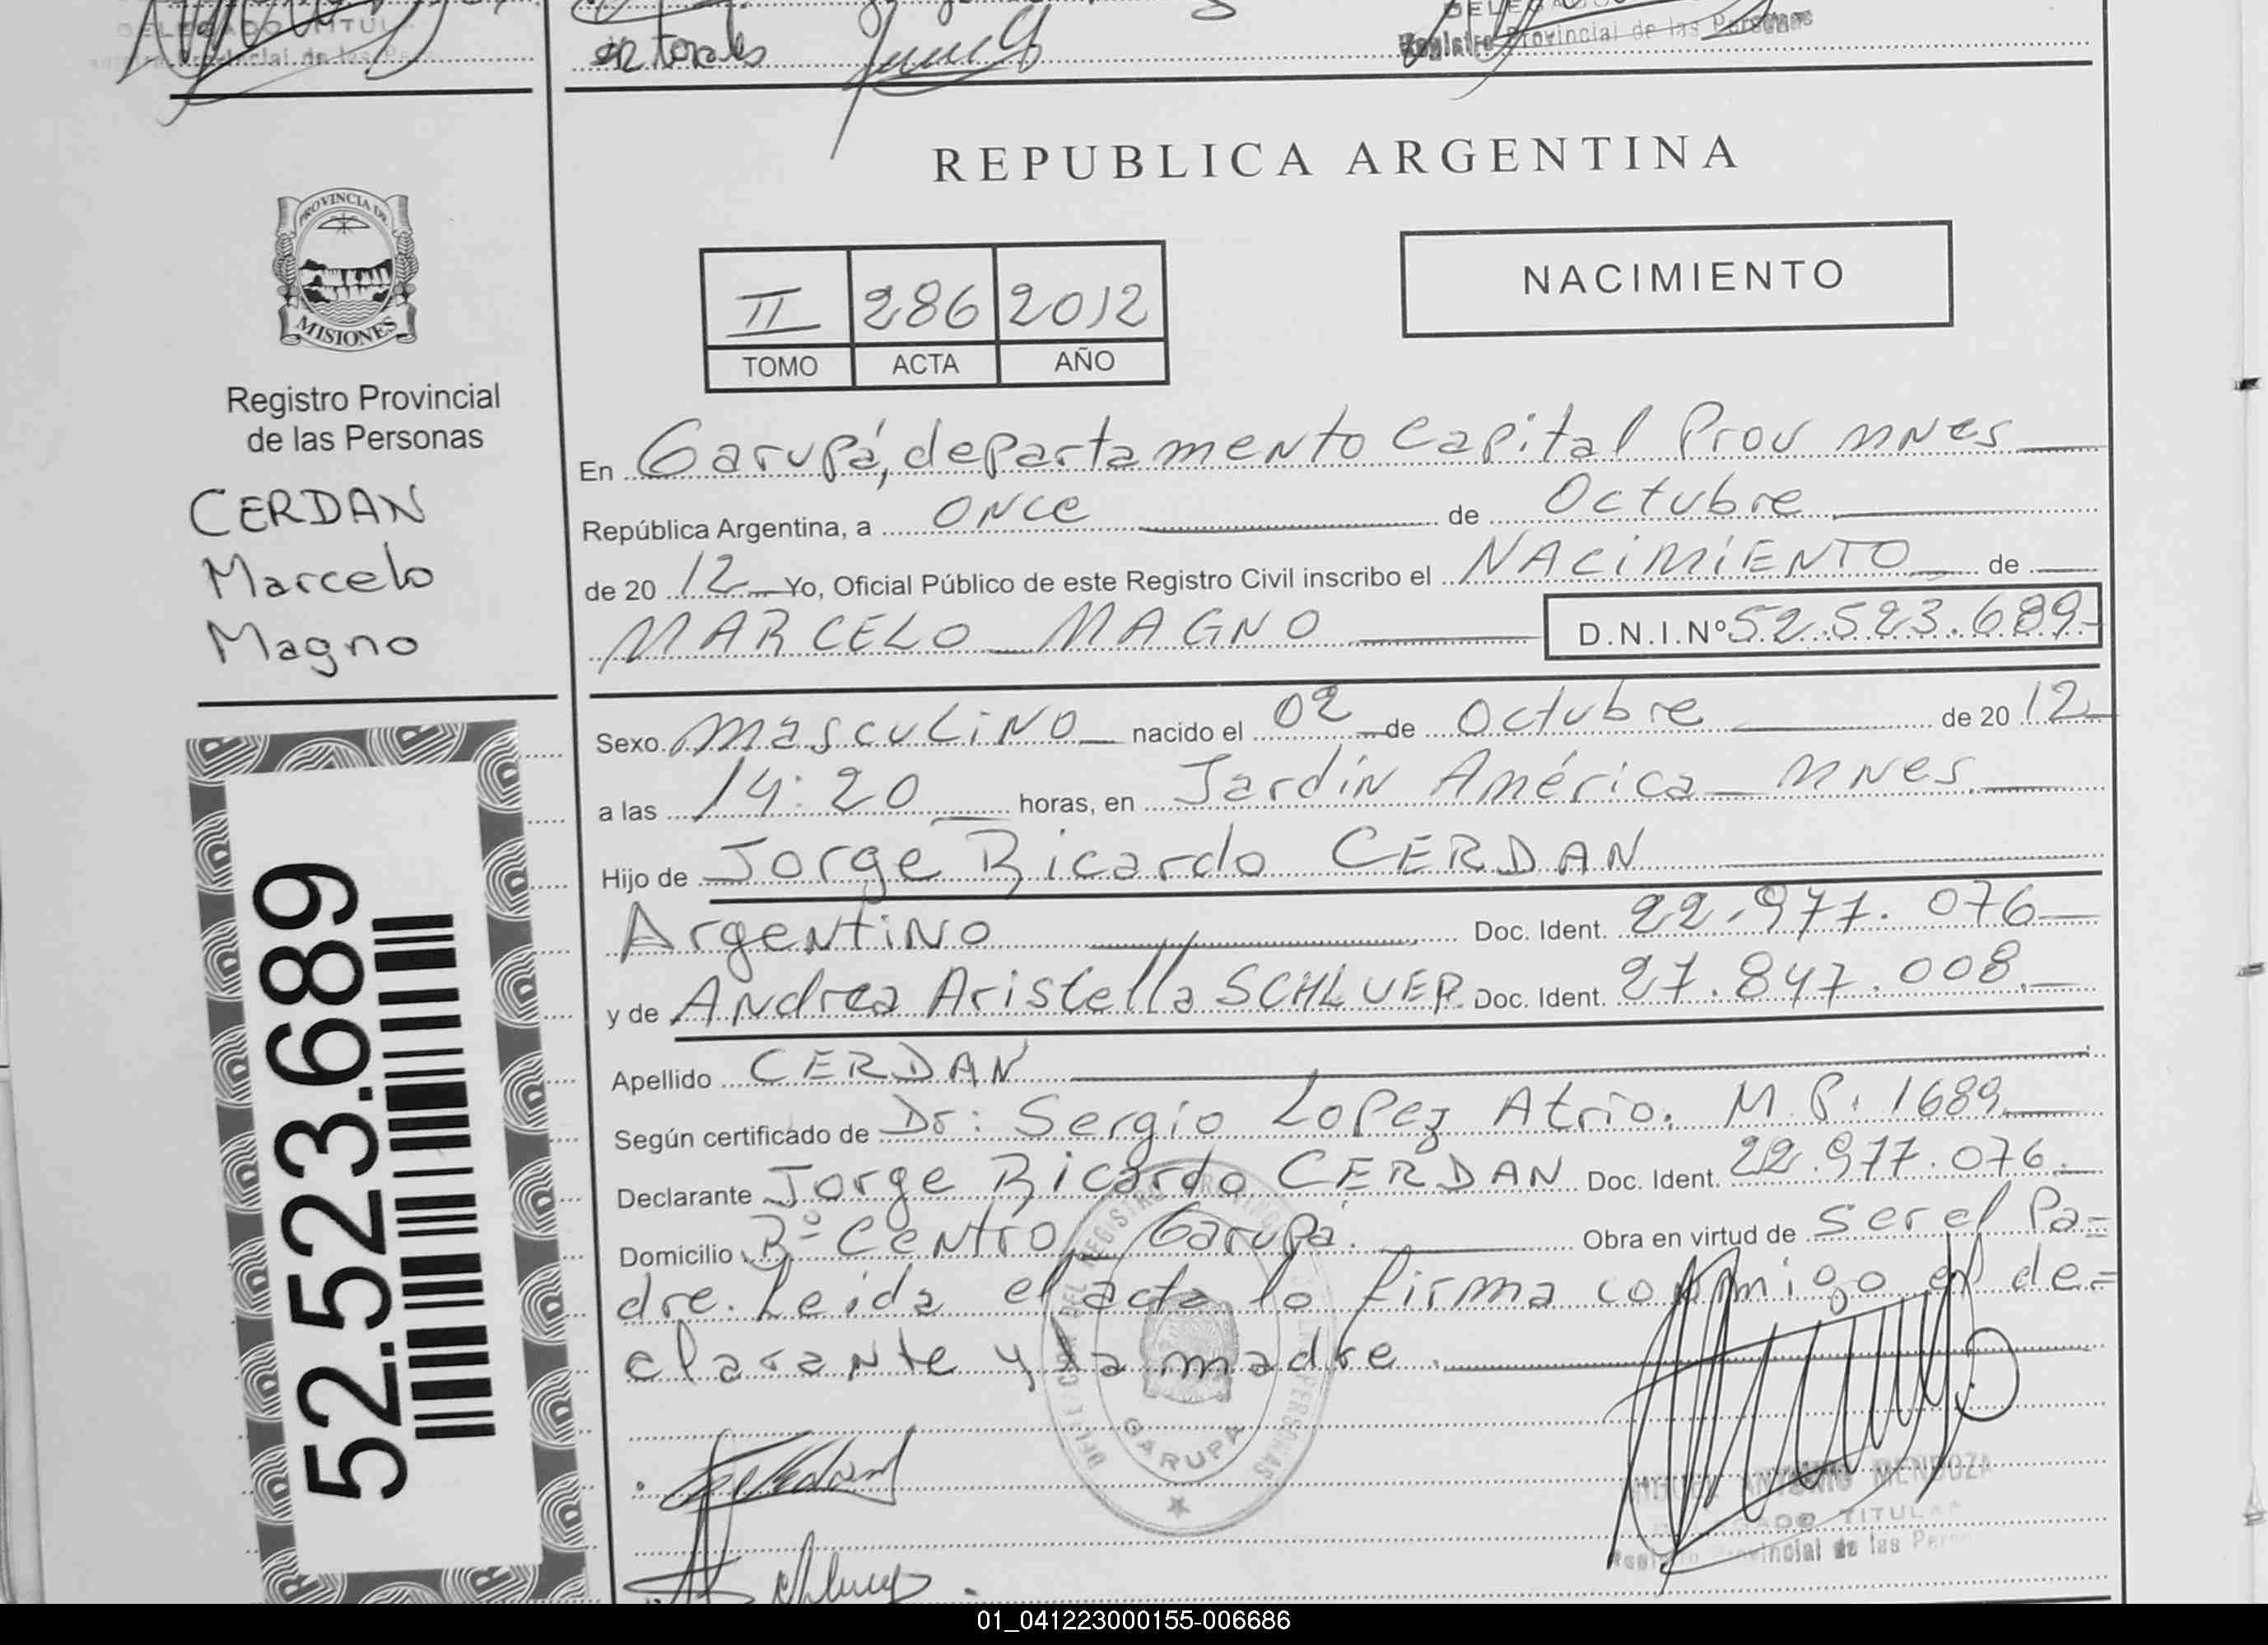 DELEGADO TITUL
en torales
Registro Provincial de las Personas
REPUBLICA ARGENTINA
PROVINCIA DE
MISIONES
Registro Provincial
de las Personas
CERDAN
Marcelo
Magno
52.523.689
II 286 2012
TOMO ACTA AÑO
NACIMIENTO
En Garupá, departamento Capital Prov mnes
República Argentina, a once de Octubre
de 20 12 Yo, Oficial Público de este Registro Civil inscribo el NACIMIENTO de
MARCELO MAGNO D.N.I.Nº 52.523.689
Sexo masculino nacido el 02 de Octubre de 20 12
a las 14:20 horas, en Jardín América mnes
Hijo de Jorge Ricardo CERDAN
Argentino Doc. Ident. 22.977.076
y de Andrea Aristella SCHLUER Doc. Ident. 27.847.008
Apellido CERDAN
Según certificado de Dr: Sergio Lopez Atrio. M.P. 1689
Declarante Jorge Ricardo CERDAN Doc. Ident. 22.977.076
Domicilio Bº Centro, Garupá. Obra en virtud de ser el Pa=
dre. Leida el acta lo firma conmigo el de=
clarante y la madre.
GARUPA
ANTONIO MENDOZA
TITULAR
Registro Provincial de las Perso
01_041223000155-006686